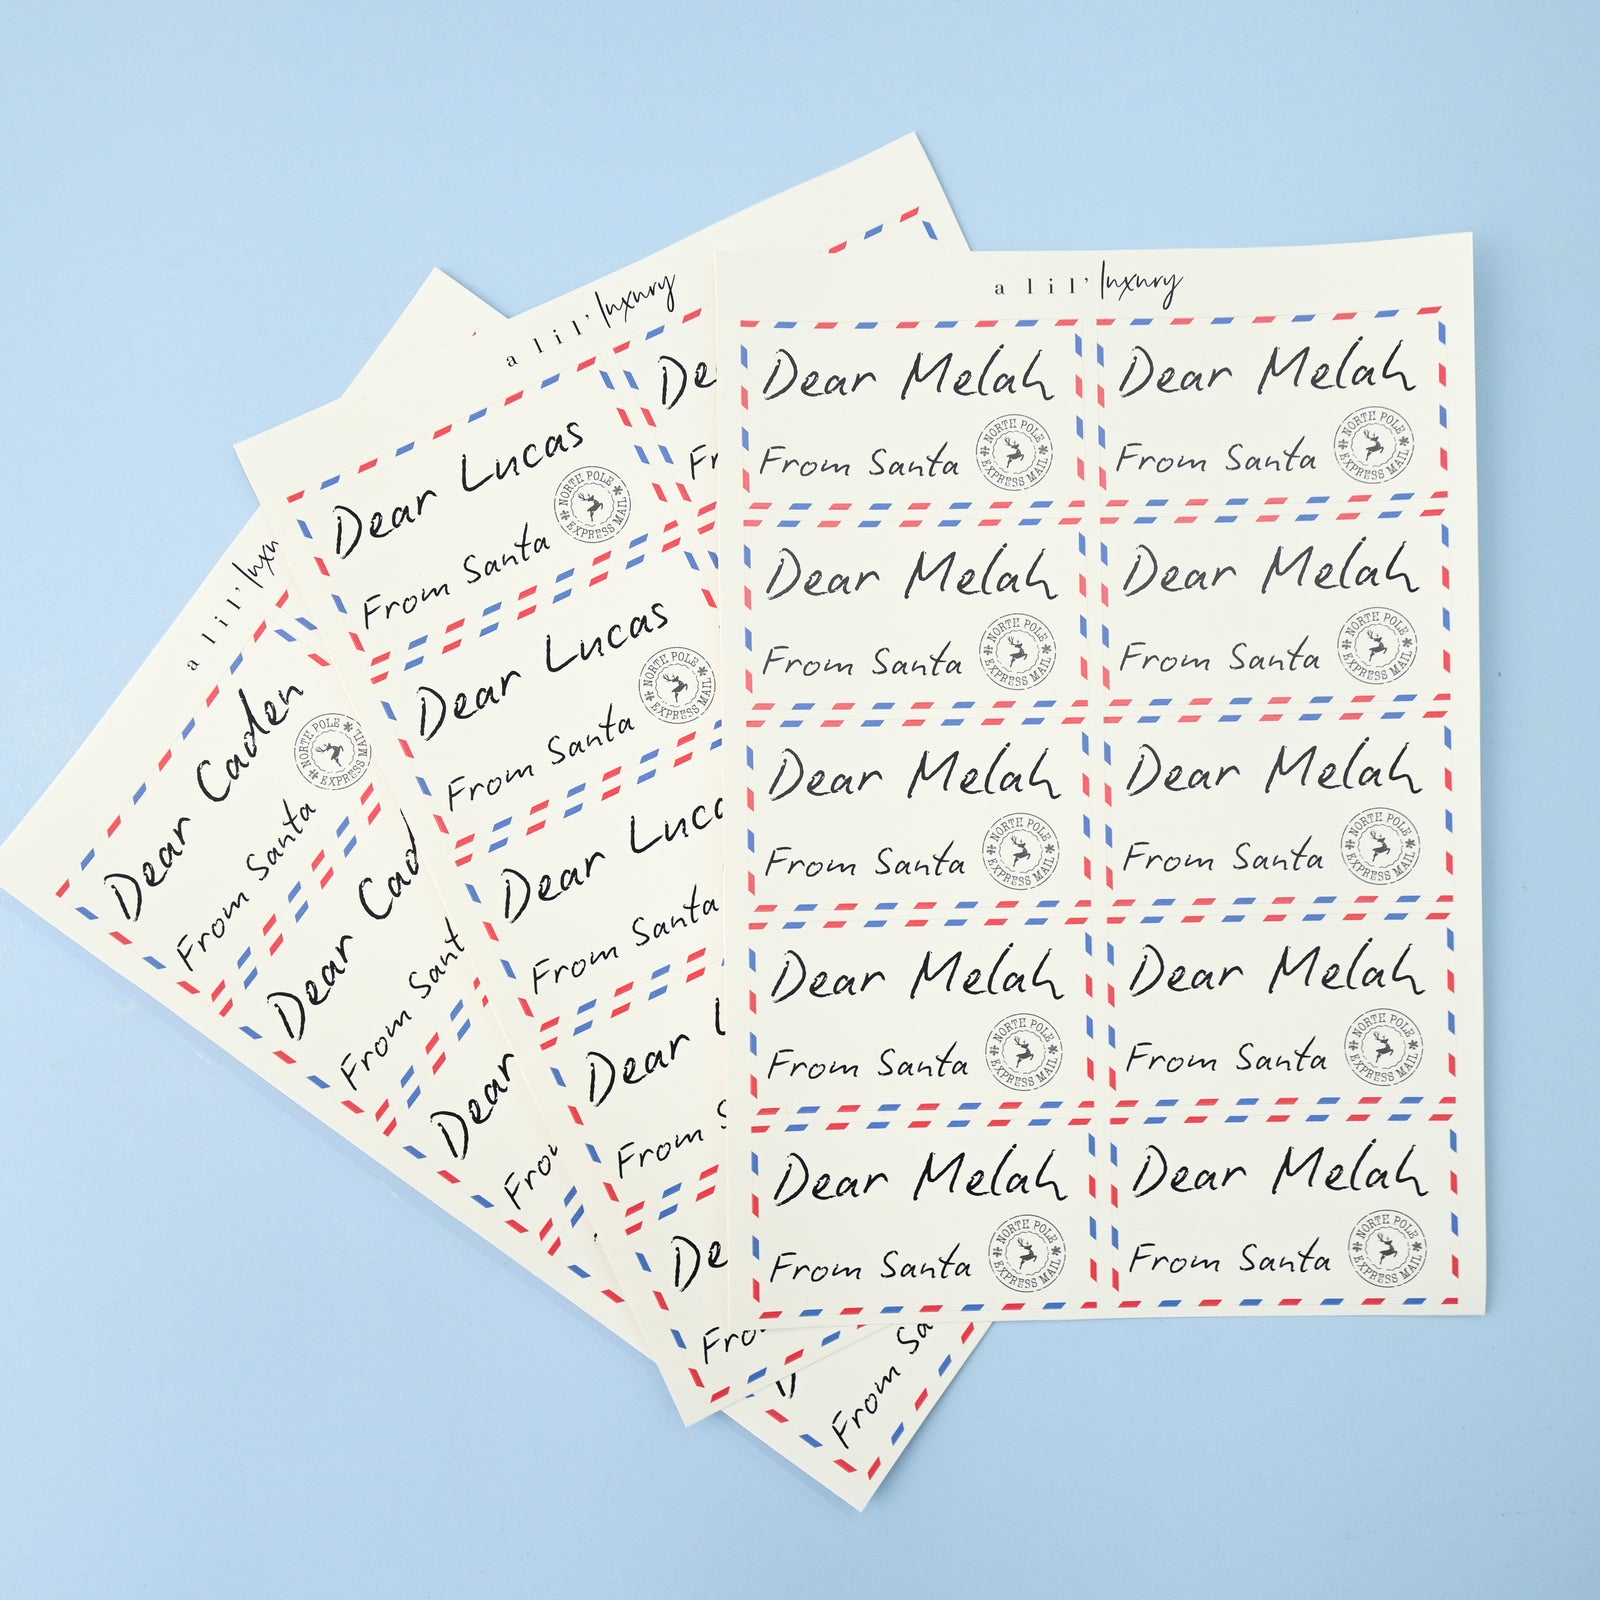 a lil' luxury
Dear Caden
From Santa
NORTH POLE
EXPRESS MAIL
Dear Cad
From Sant
Dear
From
From Sa
a lil' luxury
Dear Lucas
From Santa
NORTH POLE
EXPRESS MAIL
De
Fr
Dear Lucas
From Santa
NORTH POLE
EXPRESS MAIL
Dear Luca
From Santa
Dear L
From S
De
Fro
a lil' luxury
Dear Melah
From Santa
NORTH POLE
EXPRESS MAIL
Dear Melah
From Santa
NORTH POLE
EXPRESS MAIL
Dear Melah
From Santa
NORTH POLE
EXPRESS MAIL
Dear Melah
From Santa
NORTH POLE
EXPRESS MAIL
Dear Melah
From Santa
NORTH POLE
EXPRESS MAIL
Dear Melah
From Santa
NORTH POLE
EXPRESS MAIL
Dear Melah
From Santa
NORTH POLE
EXPRESS MAIL
Dear Melah
From Santa
NORTH POLE
EXPRESS MAIL
Dear Melah
From Santa
NORTH POLE
EXPRESS MAIL
Dear Melah
From Santa
NORTH POLE
EXPRESS MAIL